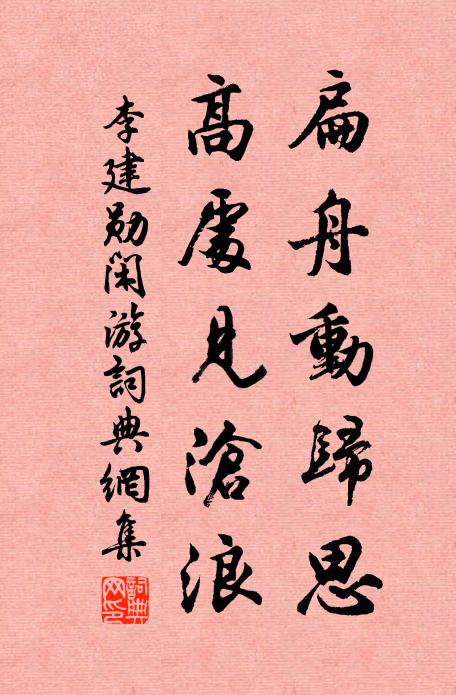 扁舟動歸思
高處見滄浪
李建勛閑游詞典網集
詞典網印